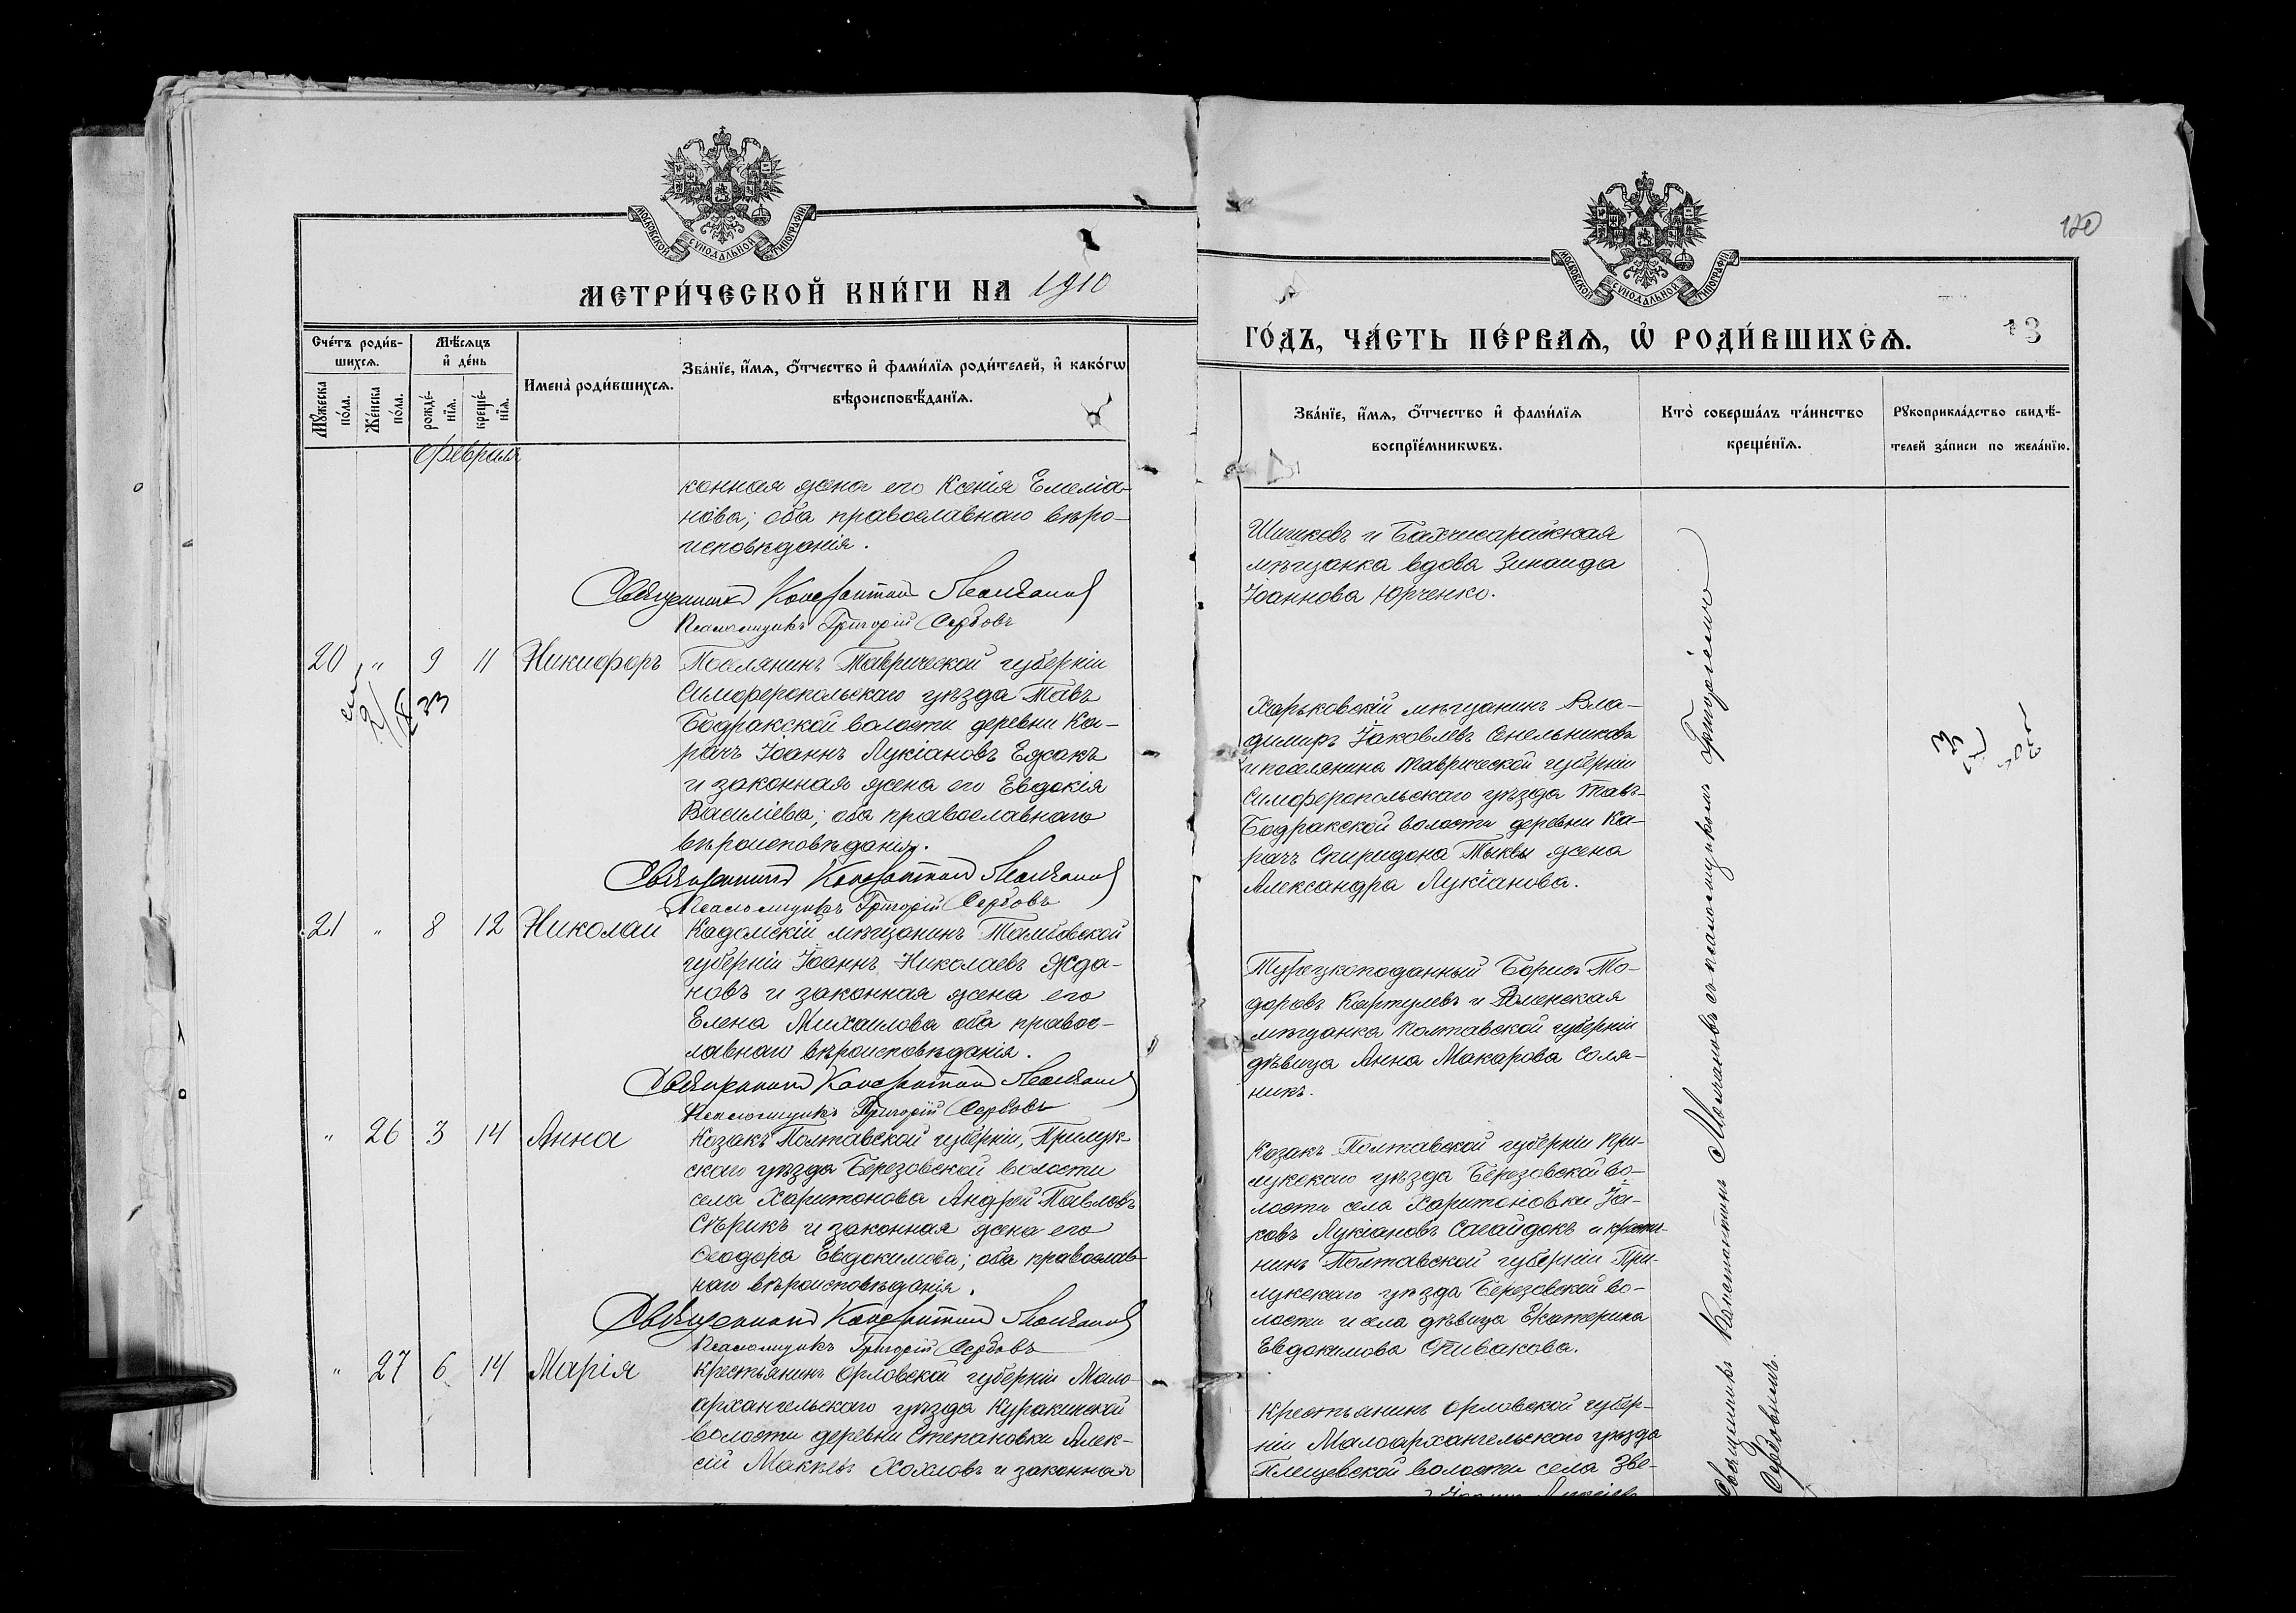 МОСКОВСКОЙ СУНОДАЛЬНОЙ ТИПОГРАФІИ
МЕТРИ́ЧЕСКОЙ КНИ́ГИ НА 1910
Сче́тъ роди́в-
шихсѧ.
Мꙋ́жеска по́ла.
Же́нска по́ла.
Мѣ́сѧцъ
и҆ де́нь
рожде́-
нїѧ.
креще́-
нїѧ.
Имена̀ роди́вшихсѧ.
Зва́нїе, и҆́мѧ, ѻ҆́тчество и҆ фами́лїѧ роди́телей, и҆ како́гѡ
вѣроисповѣ́данїѧ.
Февраля
конная жена его Ксенія Емеліа-
нова; оба православнаго веро-
исповѣданія.
Священникъ Константинъ Молчановъ
Псаломщикъ Григорій Сербовъ
20 " 9 11 Никифоръ Поселянинъ Таврической губерніи
Симферопольскаго уѣзда Тавъ
Бодракской волости деревни Ка-
рачъ Іоаннъ Лукіановъ Ежакъ
и законная жена его Евдокія
Василіева; оба православнаго
вѣроисповѣданія.
Священникъ Константинъ Молчановъ
Псаломщикъ Григорій Сербовъ
21 " 8 12 Николай Кадомскій мѣщанинъ Тамбовской
губерніи Іоаннъ Николаевъ Жда-
новъ и законная жена его
Елена Михаилова оба правос-
лавнаго вѣроисповѣданія.
Священникъ Константинъ Молчановъ
Псаломщикъ Григорій Сербовъ
" 26 3 14 Анна Козакъ Полтавской губерніи, Прилук-
скаго уѣзда Березовской волости
села Харитонова Андрей Павловъ
Сѣрикъ и законная жена его
Ѳеодора Евдокимова; оба православ-
наго вѣроисповѣданія.
Священникъ Константинъ Молчановъ
Псаломщикъ Григорій Сербовъ
" 27 6 14 Марія Крестьянинъ Орловской губерніи Мало-
архангельскаго уѣзда Куракинской
волости деревни Степановки Алек-
сій Хохловъ и законная
120
МОСКОВСКОЙ СУНОДАЛЬНОЙ ТИПОГРАФІИ
ГО́ДЪ, ЧА́СТЬ ПЕ́РВАѦ, Ѡ҆ РОДИ́ВШИХСѦ.
13
Зва́нїе, и҆́мѧ, ѻ҆́тчество и҆ фами́лїѧ
воспрїе́мникѡвъ.
Кто̀ соверша́лъ та́инство
креще́нїѧ.
Рꙋкоприкла́дство свидѣ́-
телей за́писи по жела́нїю.
Шишковъ и Бахчисарайская
мѣщанка вдова Зинаида
Іоаннова Юрченко.
Харьковскій мѣщанинъ Вла-
димиръ Іаковлевъ Синельниковъ
и поселянина Таврической губерніи
Симферопольскаго уѣзда Тавъ-
Бодракской волости деревни Ка-
рачъ Спиридона Тыквы жена
Александра Лукіанова.
Турецкоподанный Борисъ То-
доровъ Картулевъ и Роменская
мѣщанка Полтавской губерніи
дѣвица Анна Макарова Соля-
никъ.
Козакъ Полтавской губерніи При-
лукскаго уѣзда Березовской во-
лости села Харитоновки Іа-
ковъ Лукіановъ Сагайдакъ и крестья-
нинъ Полтавской губерніи При-
лукскаго уѣзда Березовской во-
лости и села дѣвица Екатерина
Евдокимова Спивакова.
Крестьянинъ Орловской губер-
ніи Малоархангельскаго уѣзда
Плещевской волости села Зве-
Священникъ Константинъ Молчановъ съ псаломщикомъ Григоріемъ
Сербовымъ.